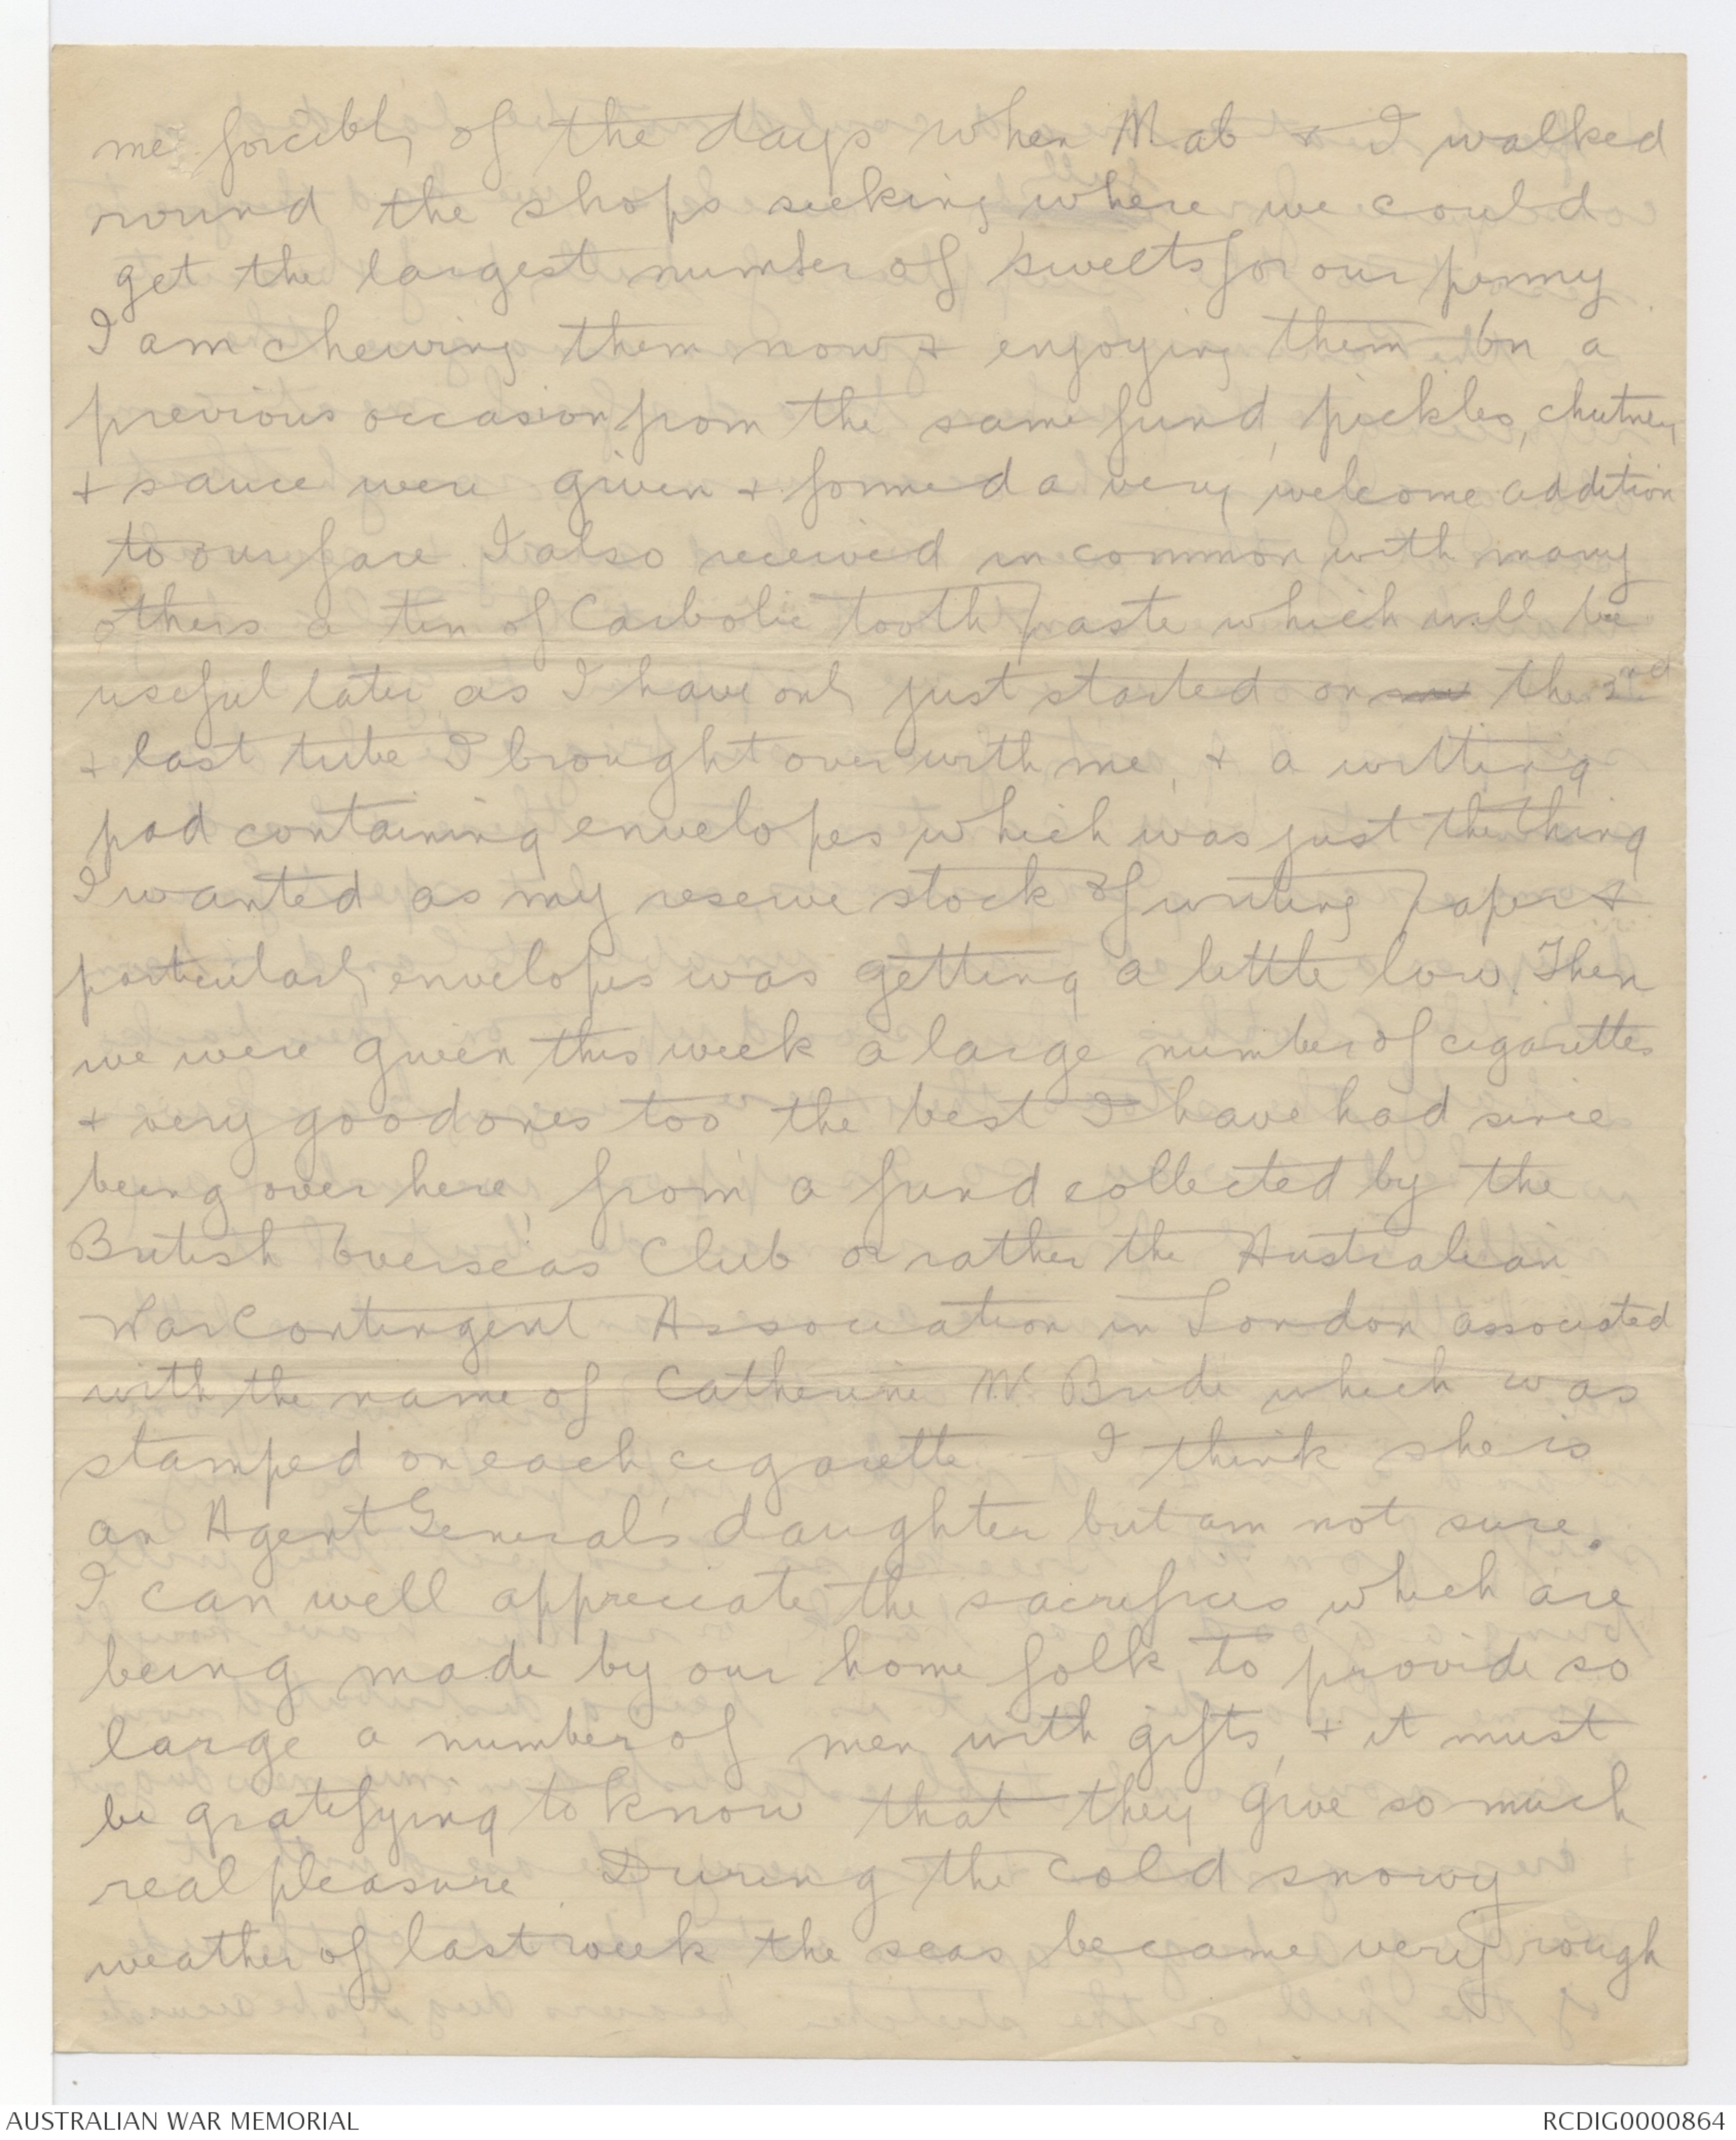 me forcibly of the days when Mab & I walked
round the shops seeking where we could
get the largest number of sweets for our penny.
I am chewing them now & enjoying them. On a
previous occasion from the same fund, pickles, chutney
& sauce were given & formed a very welcome addition
to our fare. I also received in common with many
others a tin of Carbolic tooth paste which will be
useful later as I have only just started on the 2nd
& last tube I brought over with me, & a writting
pad containing envelopes which was just the thing
I wanted as my reserve stock of writing paper &
particularly envelopes was getting a little low. Then
we were given this week a large number of cigarettes
& very good ones too the best I have had since
being over here, from a fund collected by the
British Overseas Club or rather the Australian
War Contingent Association in London associated
with the name of Catherine Mc Bride which was
stamped on each cigarette - I think she is
an Agent General's daughter but am not sure.
I can well appreciate the sacrifices which are
being made by our home folk to provide so
large a number of men with gifts, & it must
be gratifying to know that they give so much
real pleasure. During the cold snowy
weather of last week the seas became very rough
AUSTRALIAN WAR MEMORIAL
RCDIG0000864